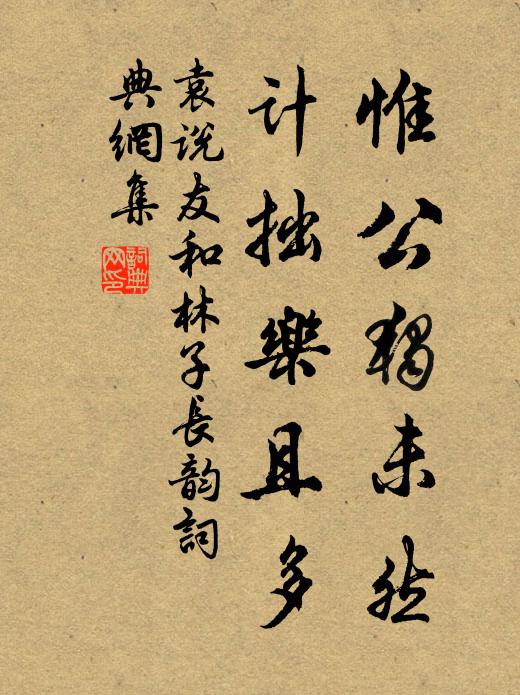 惟公獨未然
計拙樂且多
袁說友和林子長韵詞
典網集
詞典
网印